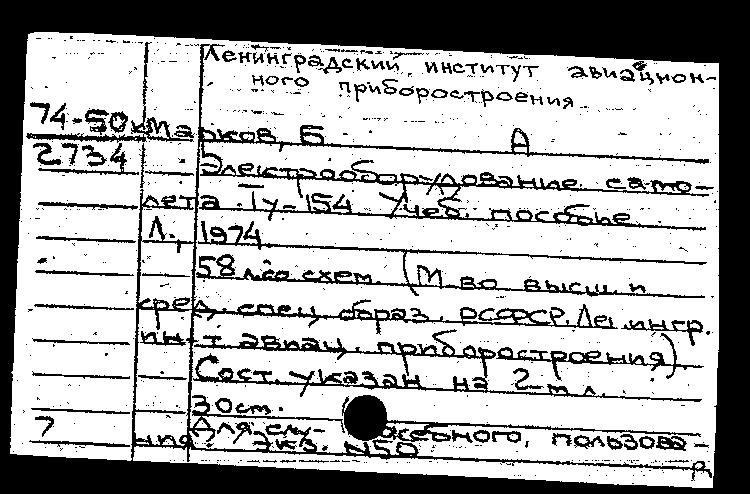 Ленинградский институт авиацион-
ного приборостроения
74-50км Марков, Б А
2734 Электрооборудование само-
лета Ту-154 Учеб. пособие
Л., 1974.
58 л. со схем. (М во высш. и
сред. спец. образ. РСФСР. Лен ингр.
ин-т авиац. приборостроения)
Сост. указан на 2-м л.
30 см.
7 Для слу- жебного, пользова-
ния. Экз. №50